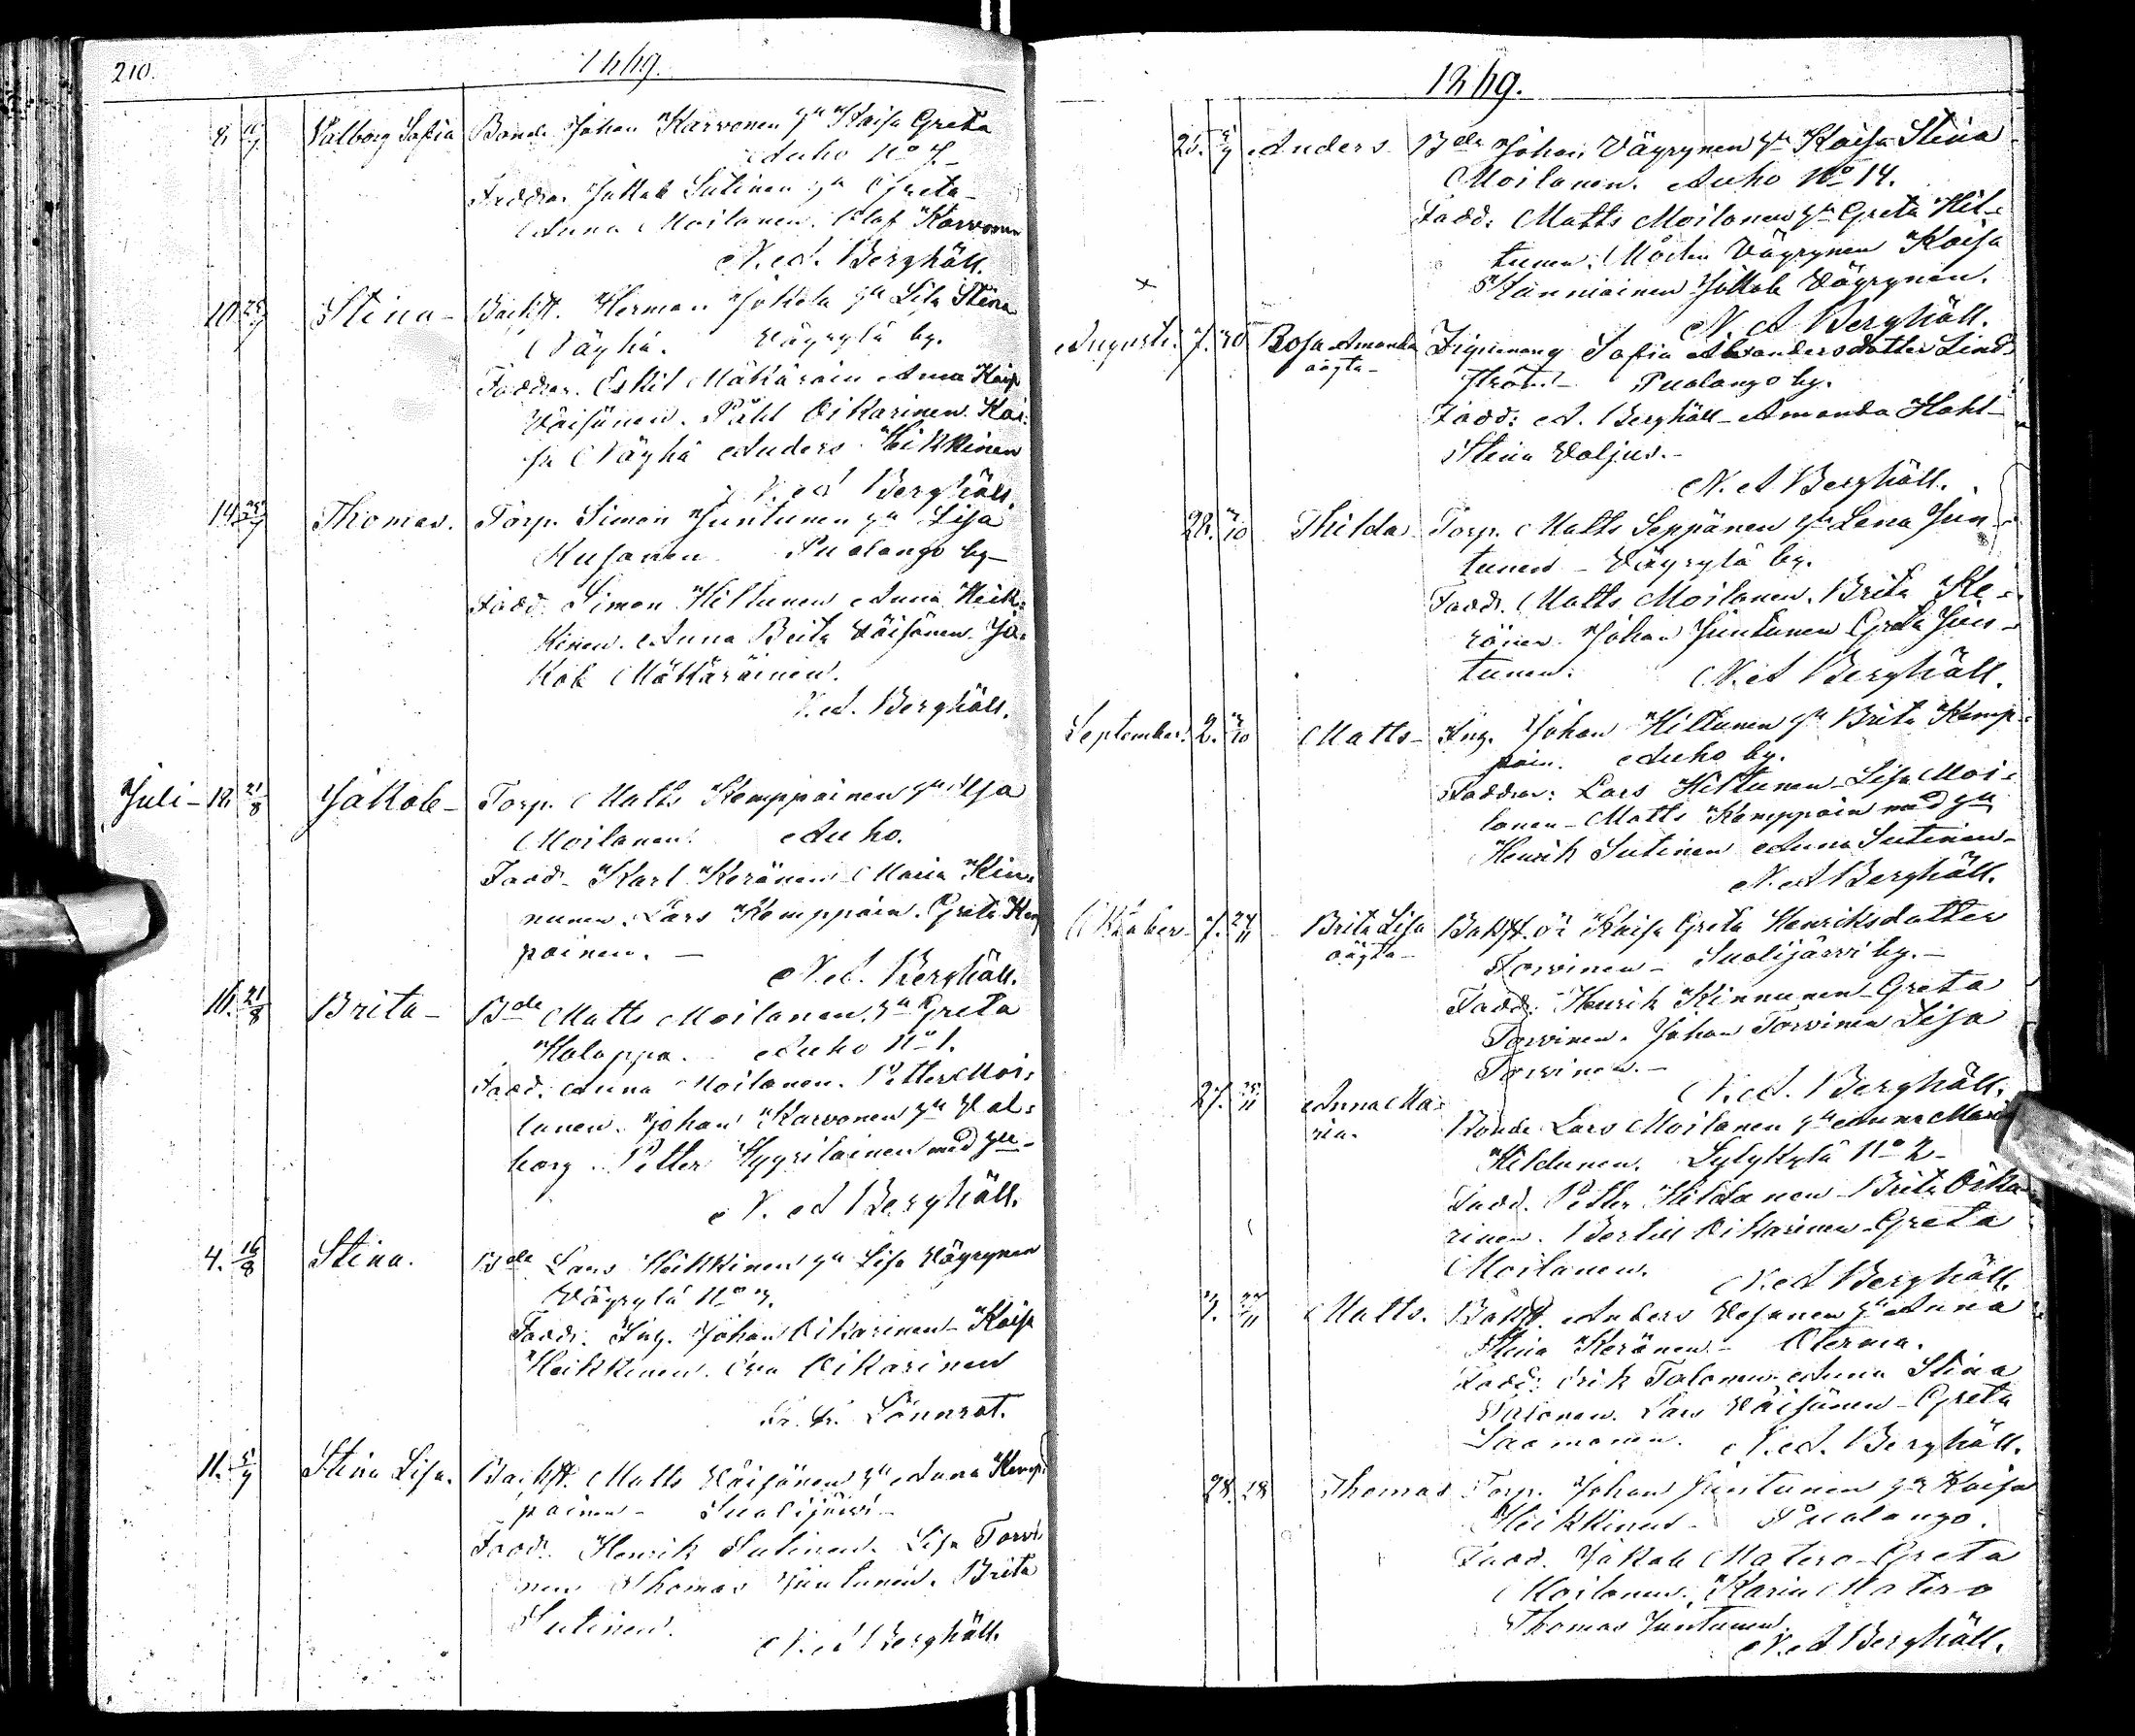 210.
1869.
8. Valborg Sofia Bonde Johan Karvonen hu Kaisa Greta
Auho No 7
Faddrar Jakob Sutinen hu Greta
Anna Moilanen. Olof Karvonen
N. A. Berghäll.
10. Stina Backst. Herman Jokela hu Lisa Stina
Näyhä. Väyrylä by.
Faddrar. Eskil Mäkäräin Anna Kaisa
Väisänen. Påhl Oikarinen Kai-
sa Näyhä Anders Heikkinen
N. A. Berghäll.
14. Thomas. Torp. Simon Juntunen hu Lisa
Kusanen Puolango by
Fadd. Simon Hiltunen Anna Heik-
kinen. Anna Brita Väisänen. Ja-
kob Mäkäräinen.
N. A. Berghäll.
Juli 18. 21/8 Jakob Torp. Matts Kemppainen hu
Moilanen. Auho.
Fadd. Karl Keränen Maria Kin-
nunen. Lars Kemppain. Greta Kemp
painen.
N. A. Berghäll.
16. 21/8 Brita Bde Matts Moilanen hu Greta
Holappa. Auho No 1.
Fadd. Anna Moilanen. Petter Moi-
lanen. Johan Karvonen hu Val-
borg. Petter Hyyriläinen med hu
N. A. Berghäll.
4. 16/8 Stina. Bde Lars Heikkinen hu Lisa Väyrynen
Väyrylä No 3.
Fadd. Ing. Johan Oikarinen Kaisa
Heikkinen. Eva Oikarinen
Lönnrot.
11. 5/9 Stina Lisa. Backst. Matts Väisänen hu Anna Kemp-
painen Suolijärvi
Fadd. Henrik Sutinen. Lisa Torvi
nen Thomas Juntunen. Brita
Sutinen.
N. A. Berghäll.
1869.
25. 5/9 Anders Bde Johan Väyrynen hu Kaisa Stina
Moilanen. Auho No 14.
Fadd: Matts Moilanen hu Greta Hil-
tunen. Mårten Väyrynen Kaisa
Kanniainen Jakob Väyrynen.
N. A Berghäll.
Augusti. 7. Rosa Amanda Sofia Alexandersdotter Lind-
oägta ström Puolango by.
Fadd: A. Berghäll Amanda Hohl-
Stina Valjus.
N. A Berghäll.
28. Thilda Torp. Matts Seppänen hu Lena Jun-
tunen Väyrylä by.
Fadd. Matts Moilanen. Brita Ke-
ränen Johan Juntunen Greta Jun-
tunen. N. A Berghäll.
September. 2. Matts Ing. Johan Hiltunen hu Brita Kemp-
pain. Auho by.
Faddrar: Lars Hiltunen Lisa Moi-
lanen Matts Kemppain med hu
Henrik Sutinen Anna Sutinen
N. A Berghäll.
Oktober 7. 24/11 Brita Lisa Backst. Kaisa Greta Henriksdotter
oägta Torvinen Suolijärvi by.
Fadd: Henrik Kinnunen Greta
Torvinen. Johan Torvinen Lisa
Torvinen.
N. A. Berghäll.
27. 25/11 Anna Ma-
ria. Bonde Lars Moilanen hu Anna Maria
Hildunen. Lylykylä No 2
Fadd. Petter Hildunen Brita Oika-
rinen. Bertill Oikarinen Greta
Moilanen. N. A Berghäll.
Matts. Backst. Anders Vesanen hu Anna
Stina Keränen. Oterma.
Fadd: Erik Talonen Anna Stina
Talonen. Lars Väisänen Greta
N. A. Berghäll.
28. Thomas Torp. Johan Juntunen hu Kaisa
Heikkinen. Puolango.
Fadd. Jakob Matero Greta
Moilanen. Karin Matero
Thomas Juntunen.
N. A Berghäll.